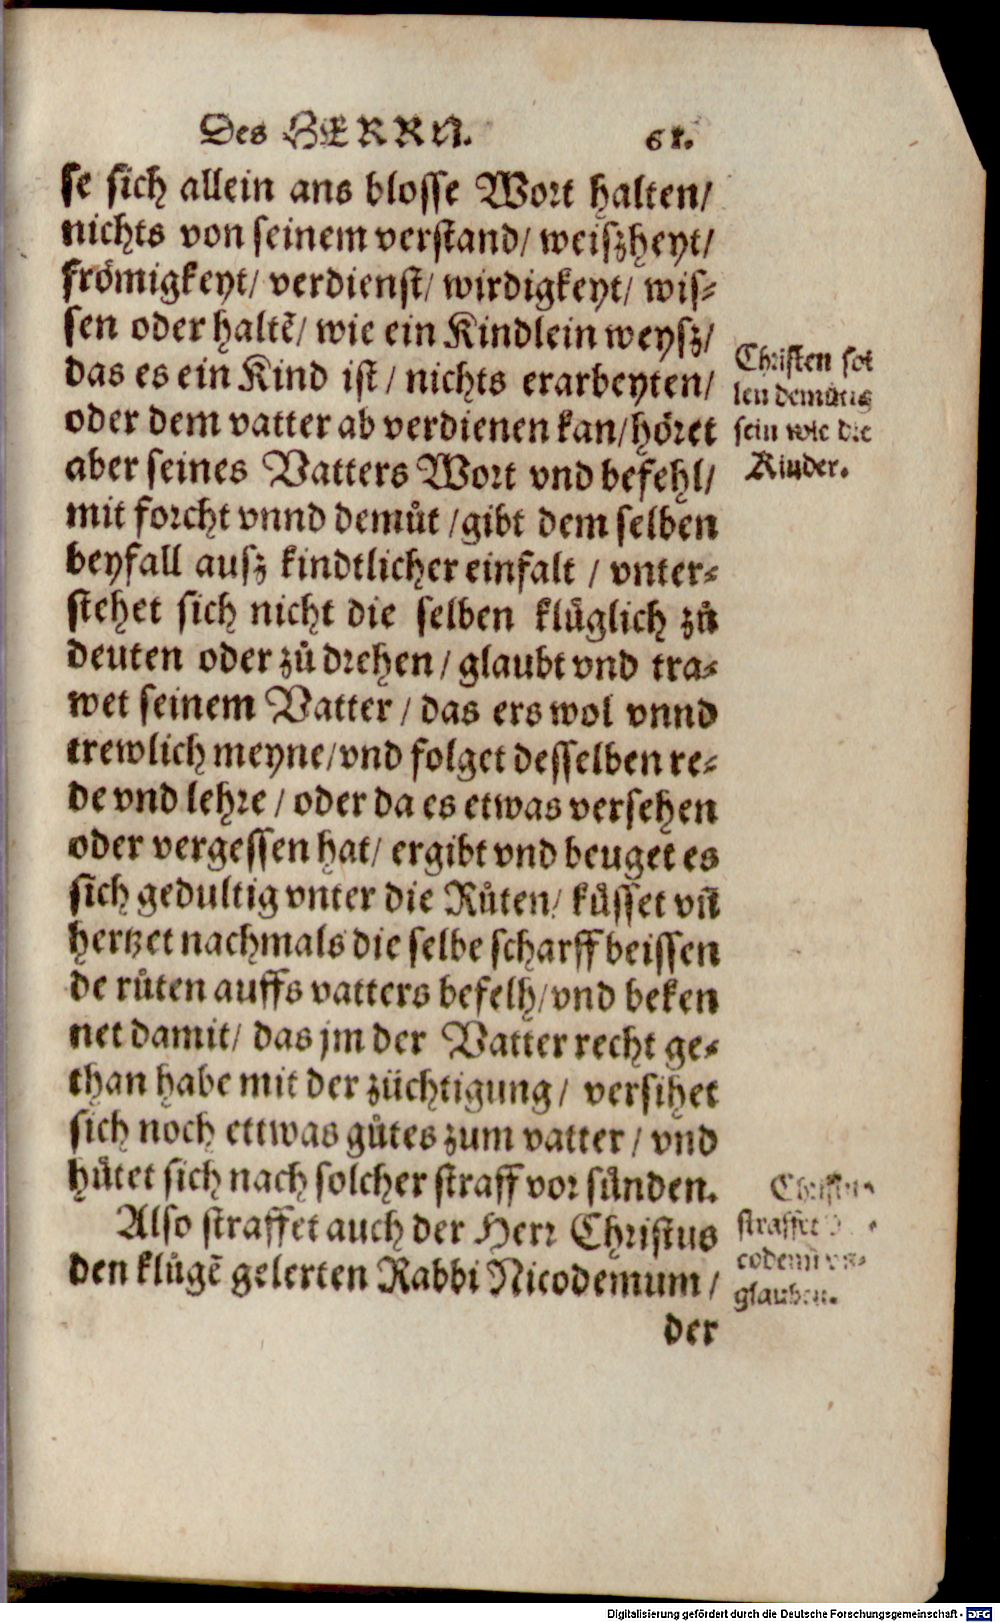 Des HERRN. 61.
se sich allein ans blosse Wort halten/
nichts von seinem verstand/ weiszheyt/
frömigkeyt/ verdienst/ wirdigkeyt/ wis-
sen oder haltẽ/ wie ein Kindlein weysz/
das es ein Kind ist/ nichts erarbeyten/
oder dem vatter ab verdienen kan/höret
aber seines Vatters Wort vnd befehl/
mit forcht vnnd demůt /gibt dem selben
beyfall ausz kindtlicher einfalt / vnter-
stehet sich nicht die selben klůglich zů
deuten oder zů drehen/ glaubt vnd tra-
wet seinem Vatter / das ers wol vnnd
trewlich meyne/vnd folget desselben re-
de vnd lehre / oder da es etwas versehen
oder vergessen hat/ ergibt vnd beuget es
sich gedultig vnter die Růten/ kůsset vñ
hertzet nachmals die selbe scharff beissen
de růten auffs vatters befelh/vnd beken
net damit/ das jm der Vatter recht ge-
than habe mit der züchtigung/ versihet
sich noch ettwas gůtes zum vatter / vnd
hůtet sich nach solcher straff vor sůnden.
Also straffet auch der Herr Christus
den klůgẽ gelerten Rabbi Nicodemum /
der
Christen sol
len demůtig
sein wie die
Kinder.
Christus
straffet
codemũ vn-
glauben.